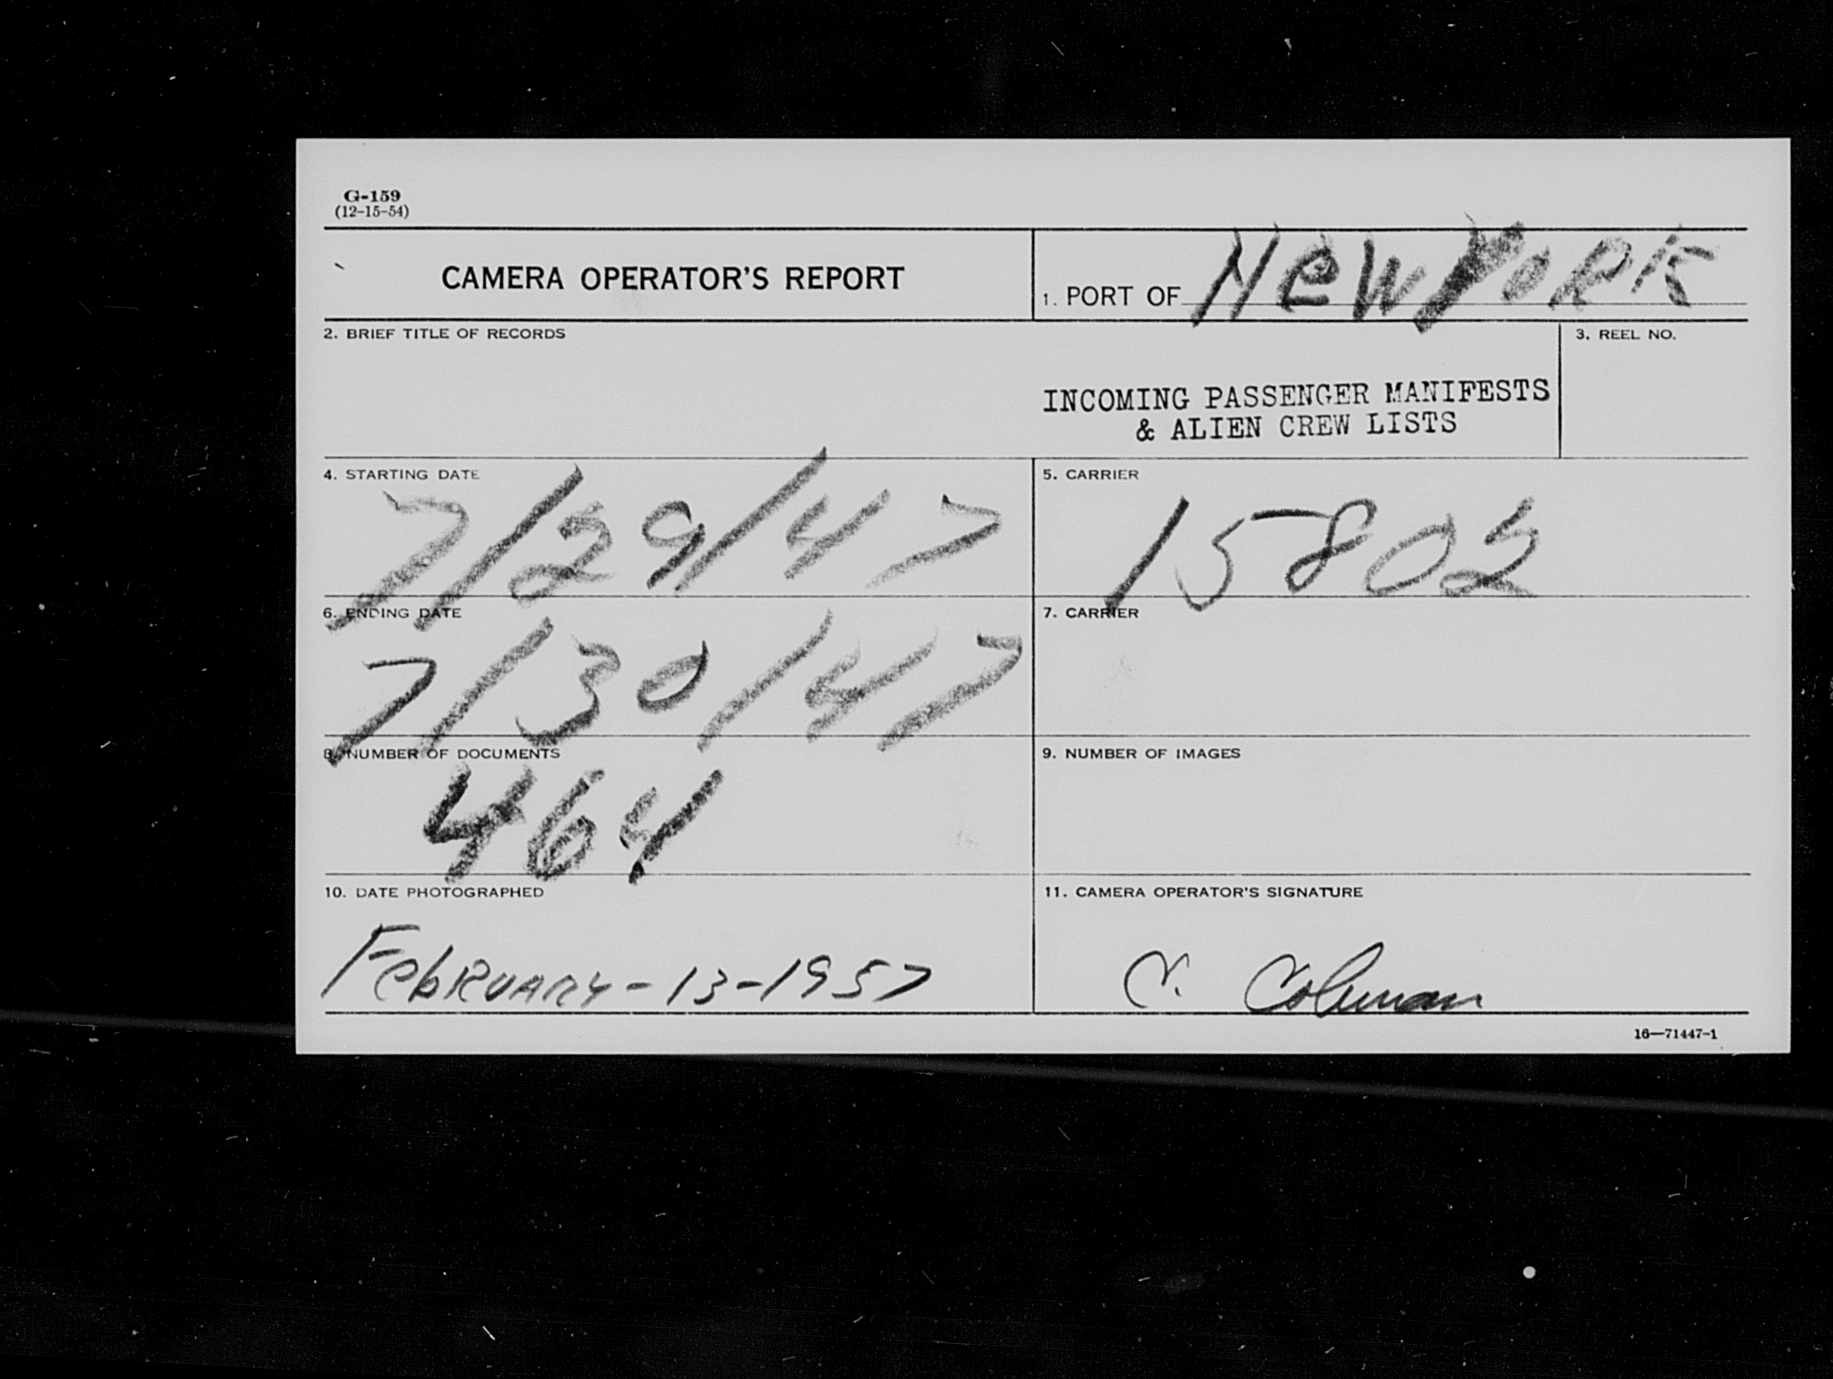 G-159
(12-15-54)
CAMERA OPERATOR'S REPORT
1. PORT OF New York
2. BRIEF TITLE OF RECORDS
3. REEL NO.
INCOMING PASSENGER MANIFESTS
& ALIEN CREW LISTS
4. STARTING DATE
7/29/47
5. CARRIER
15802
6. ENDING DATE
7/30/47
7. CARRIER
8. NUMBER OF DOCUMENTS
464
9. NUMBER OF IMAGES
10. DATE PHOTOGRAPHED
February-13-1957
11. CAMERA OPERATOR'S SIGNATURE
C. Coleman
16—71447-1